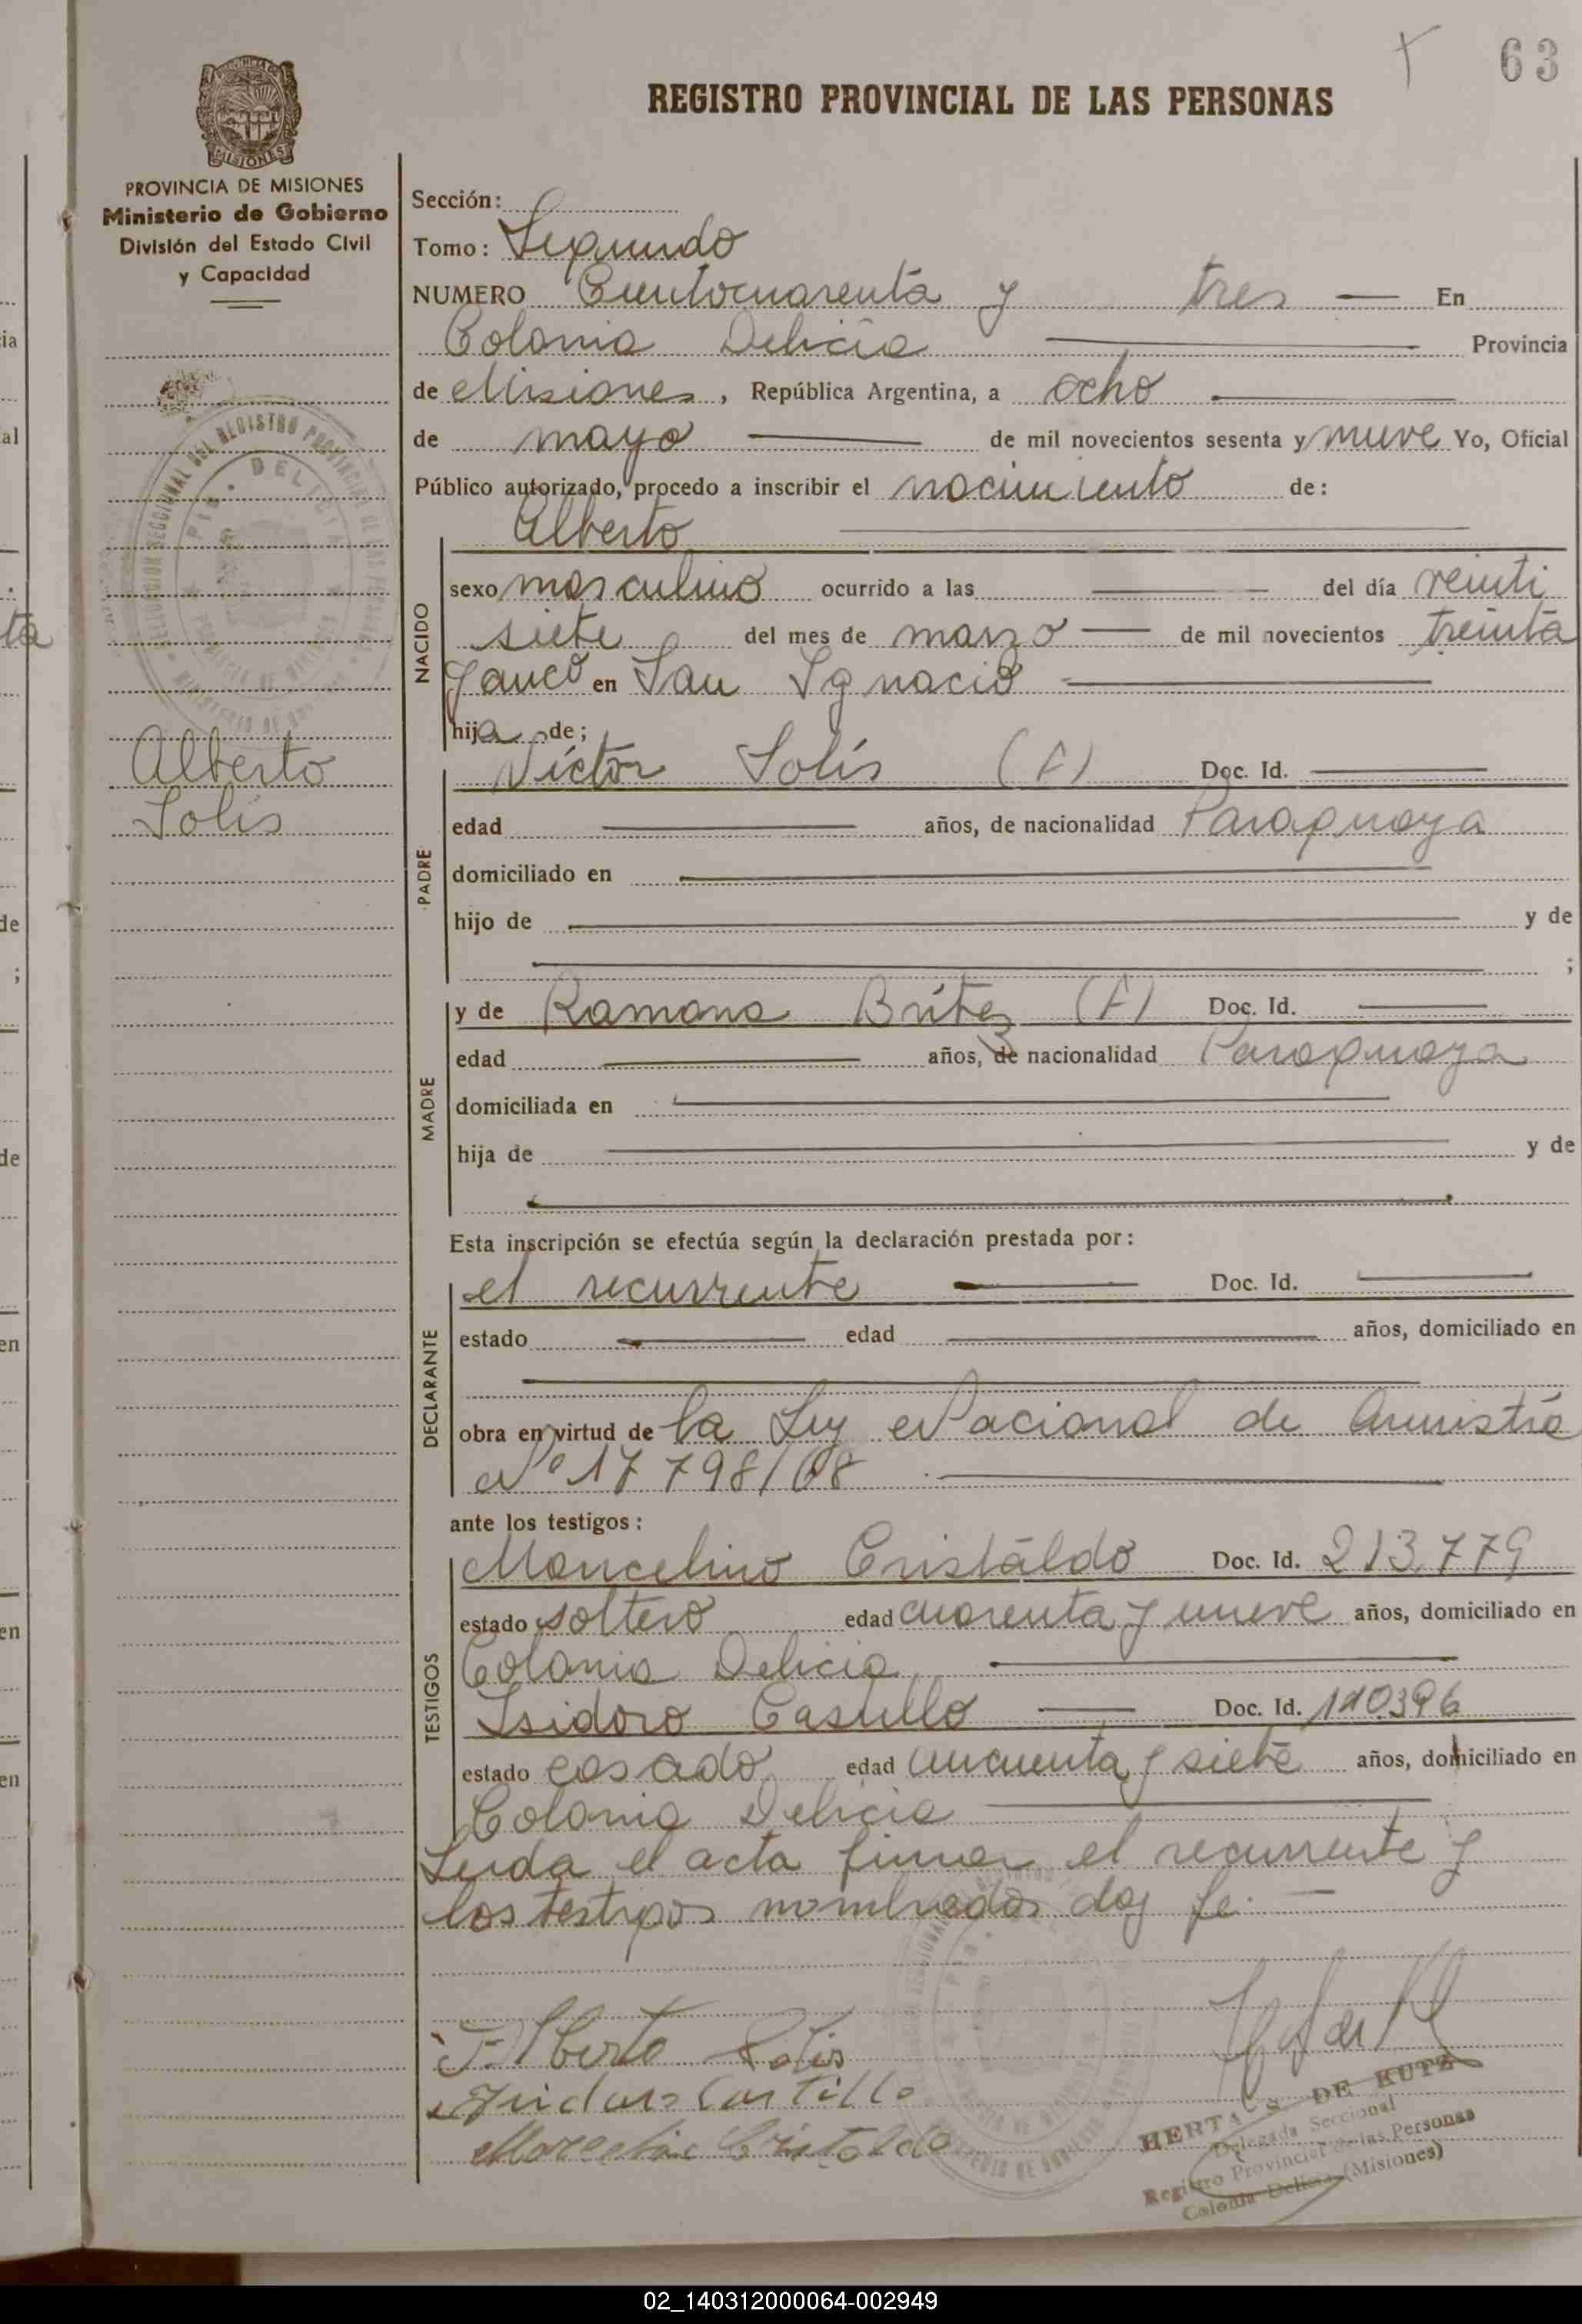 63
REGISTRO PROVINCIAL DE LAS PERSONAS
MISIONES
PROVINCIA DE MISIONES
Ministerio de Gobierno
División del Estado Civil
y Capacidad
Sección:
Tomo: Segundo
NUMERO Cientocuarenta y tres — En
Colonia Delicia — Provincia
de Misiones, República Argentina, a ocho —
de mayo — de mil novecientos sesenta y nueve Yo, Oficial
Público autorizado, procedo a inscribir el nacimiento de:
Alberto
NACIDO
sexo masculino ocurrido a las — del día veinti
siete del mes de marzo — de mil novecientos treinta
y cinco en San Ignacio —
hijo de;
Alberto
Solis
PADRE
Víctor Solís (f) Doc. Id. —
edad — años, de nacionalidad Paraguaya
domiciliado en —
hijo de — y de
— ;
MADRE
y de Ramona Brítez (f) Doc. Id. —
edad — años, de nacionalidad Paraguaya
domiciliada en —
hija de — y de
Esta inscripción se efectúa según la declaración prestada por:
DECLARANTE
el recurrente — Doc. Id. —
estado — edad — años, domiciliado en
obra en virtud de la Ley Nacional de Amnistía
Nº 17798/68 —
ante los testigos:
TESTIGOS
Marcelino Cristáldo Doc. Id. 213.779
estado soltero edad cuarenta y nueve años, domiciliado en
Colonia Delicia —
Isidoro Castillo — Doc. Id. 110396
estado casado edad cincuenta y siete años, domiciliado en
Colonia Delicia —
Leida el acta firman el recurrente y
los testigos nombrados doy fe. —
Alberto Solis
Isidoro Castillo
Marcelino Cristaldo
HERTA S DE KUTZ
Delegada Seccional
Registro Provincial de las Personas
Colonia Delicia (Misiones)
02_140312000064-002949